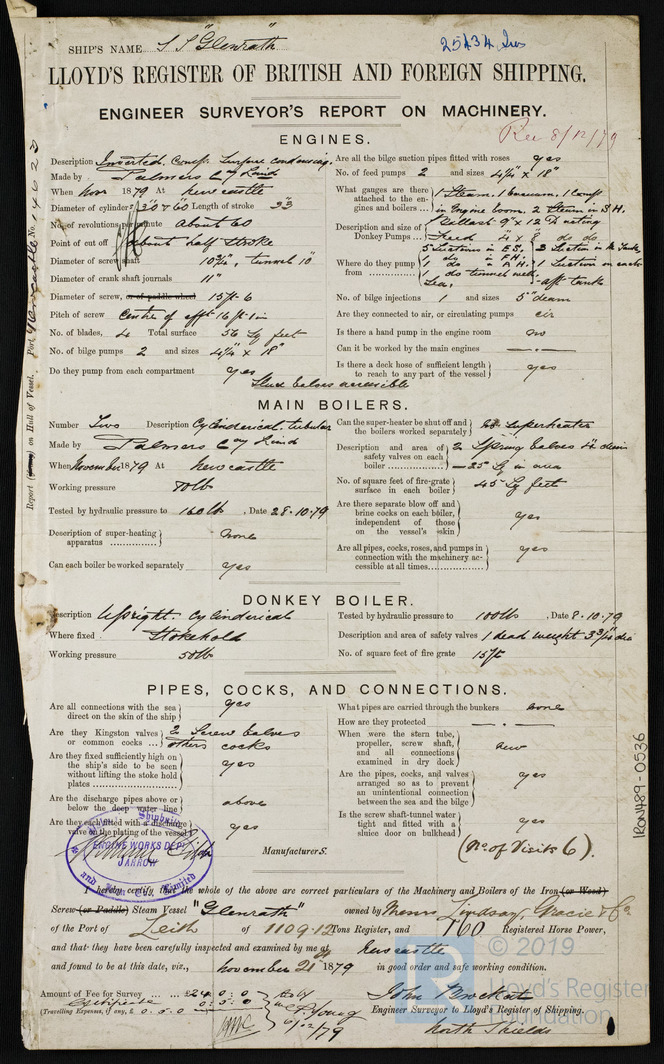 SHIP'S NAME S S "Glenrath"
25434 Iron
LLOYD'S REGISTER OF BRITISH AND FOREIGN SHIPPING.
ENGINEER SURVEYOR'S REPORT ON MACHINERY.
Rec 8/12/79
ENGINES.
Description Inverted. Comp. Surface condensing.
Made by Palmers Coy Limd
When Nov 1879 At Newcastle
Diameter of cylinders 30 & 60 Length of stroke 33"
No. of revolutions per minute about 60
Point of cut off about half stroke
Diameter of screw shaft 10 3/4", tunnel 10"
Diameter of crank shaft journals 11"
Diameter of screw, or of paddle wheel 15 ft 6
Pitch of screw Centre of 16 ft 1 in
No. of blades, 4 Total surface 56 Sq feet
No. of bilge pumps 2 and sizes 4 1/4" x 18"
Do they pump from each compartment yes
Sluice valves accessible
Are all the bilge suction pipes fitted with roses yes
No. of feed pumps 2 and sizes 4 1/4" x 18"
What gauges are there attached to the engines and boilers 1 Steam. 1 Vacuum. 1 Comp
in Engine Room. 2 Steam in S.H.
Description and size of Donkey Pumps Ballast 9" x 12 D acting
Feed 4 x 8 do do
Where do they pump from 5 Suctions in E.S. 2 Suction in M. Tank
1 do in F.H.
1 do A.H. 1 Suction on each
1 do tunnel well.
Sea, aft tank
No. of bilge injections 1 and sizes 5" diam
Are they connected to air, or circulating pumps cir
Is there a hand pump in the engine room no
Can it be worked by the main engines —.—
Is there a deck hose of sufficient length to reach to any part of the vessel yes
Report on Hull of Vessel. Port, Newcastle No. 14623
MAIN BOILERS.
Number Two Description Cylinderical. tubular
Made by Palmers Coy Limd
When November 1879 At Newcastle
Working pressure 70 lb
Tested by hydraulic pressure to 160 lb, Date 28.10.79
Description of super-heating apparatus none
Can each boiler be worked separately yes
Can the super-heater be shut off and the boilers worked separately Superheater
Description and area of safety valves on each boiler 2 Spring valves 4" diam
= 25" Sq in area
No. of square feet of fire-grate surface in each boiler 45 Sq feet
Are there separate blow off and brine cocks on each boiler, independent of those on the vessel's skin yes
Are all pipes, cocks, roses, and pumps in connection with the machinery accessible at all times yes
DONKEY BOILER.
Description Upright. Cylinderical
Where fixed Stokehold
Working pressure 50 lb
Tested by hydraulic pressure to 100 lb, Date 8.10.79
Description and area of safety valves 1 dead weight 3 3/4" dia
No. of square feet of fire grate 15 ft
PIPES, COCKS, AND CONNECTIONS.
Are all connections with the sea direct on the skin of the ship yes
Are they Kingston valves or common cocks 2 Screw valves
others cocks
Are they fixed sufficiently high on the ship's side to be seen without lifting the stoke hold plates yes
Are the discharge pipes above or below the deep water line above
Are they each fitted with a discharge valve on the plating of the vessel yes
What pipes are carried through the bunkers none
How are they protected —.—
When were the stern tube, propeller, screw shaft, and all connections examined in dry dock new
Are the pipes, cocks, and valves arranged so as to prevent an unintentional connection between the sea and the bilge yes
Is the screw shaft-tunnel water tight and fitted with a sluice door on bulkhead yes
(No. of Visits 6).
Shipbuilding
ENGINE WORKS DEPT
JARROW
and Iron Co. Limited
Manufacturers.
I hereby certify that the whole of the above are correct particulars of the Machinery and Boilers of the Iron (or Wood)
Screw (or Paddle) Steam Vessel "Glenrath" owned by Messrs Lindsay, Gracie & Co
of the Port of Leith of 1109.12 Tons Register, and 160 Registered Horse Power,
and that they have been carefully inspected and examined by me at Newcastle
and found to be at this date, viz., November 21st 1879 in good order and safe working condition.
Amount of Fee for Survey £24 0:0
Certificate 0:5:0
(Travelling Expenses, if any, £ 0.0.0
Young
6/12/79
John
Engineer Surveyor to Lloyd's Register of Shipping.
North Shields
IRON489-0536
© 2019
Lloyd's Register
Foundation